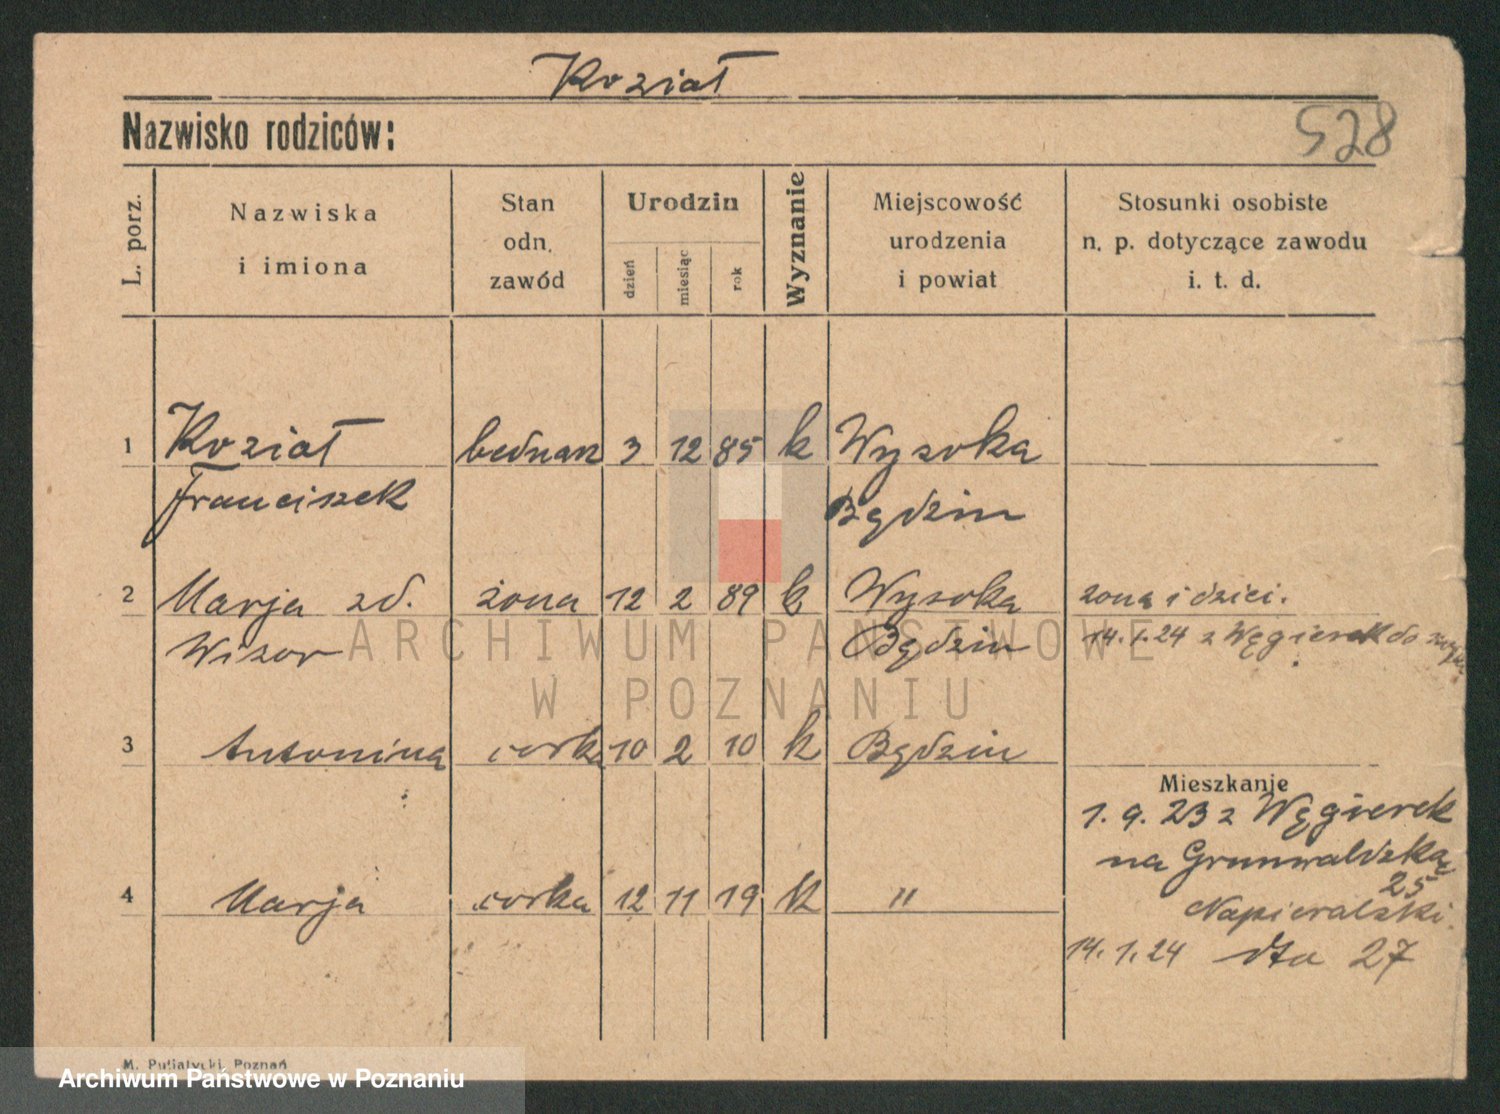 Kozioł
Nazwisko rodziców:
528
L. porz.
Nazwiska
i imiona
Stan
odn.
zawód
Urodzin
dzień
miesiąc
rok
Wyznanie
Miejscowość
urodzenia
i powiat
Stosunki osobiste
n. p. dotyczące zawodu
i. t. d.
1 Kozioł bednarz 3 12 85 k Wysoka
Franciszek Będzin
2 Marja zd. żona 12 2 89 k Wysoka żona i dzieci.
Wizor Będzin 14.1.24 z Węgierek do
3 Antonina corka 10 2 10 k Będzin
Mieszkanie
1. 9. 23 z Węgierek
na Grunwaldzką
25
4 Marja corka 12 11 19 k "
Napieralski.
14.1.24 dto 27
M. Putiatycki, Poznań
ARCHIWUM PAŃSTWOWE
W POZNANIU
Archiwum Państwowe w Poznaniu